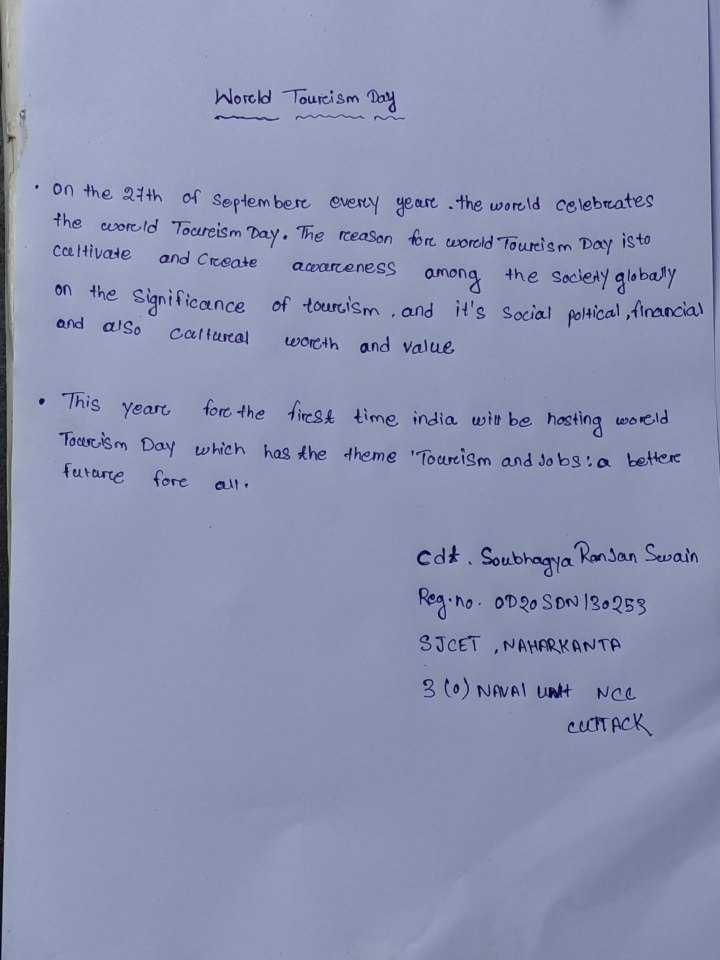 World Tourism Day
• On the 27th of September every year. the world celebrates
the world Tourism Day. The reason for world Tourism Day is to
cultivate and Create awareness among the society globally
on the significance of tourism, and it's Social political, financial
and also cultural worth and value
• This year for the first time india will be hosting world
Tourism Day which has the theme 'Tourism and Jobs: a better
future for all.
Cdt. Soubhagya Ranjan Swain
Reg. no. OD20SDN130253
SJCET, NAHARKANTA
3 (O) NAVAl UNit NCC
CUTTACK